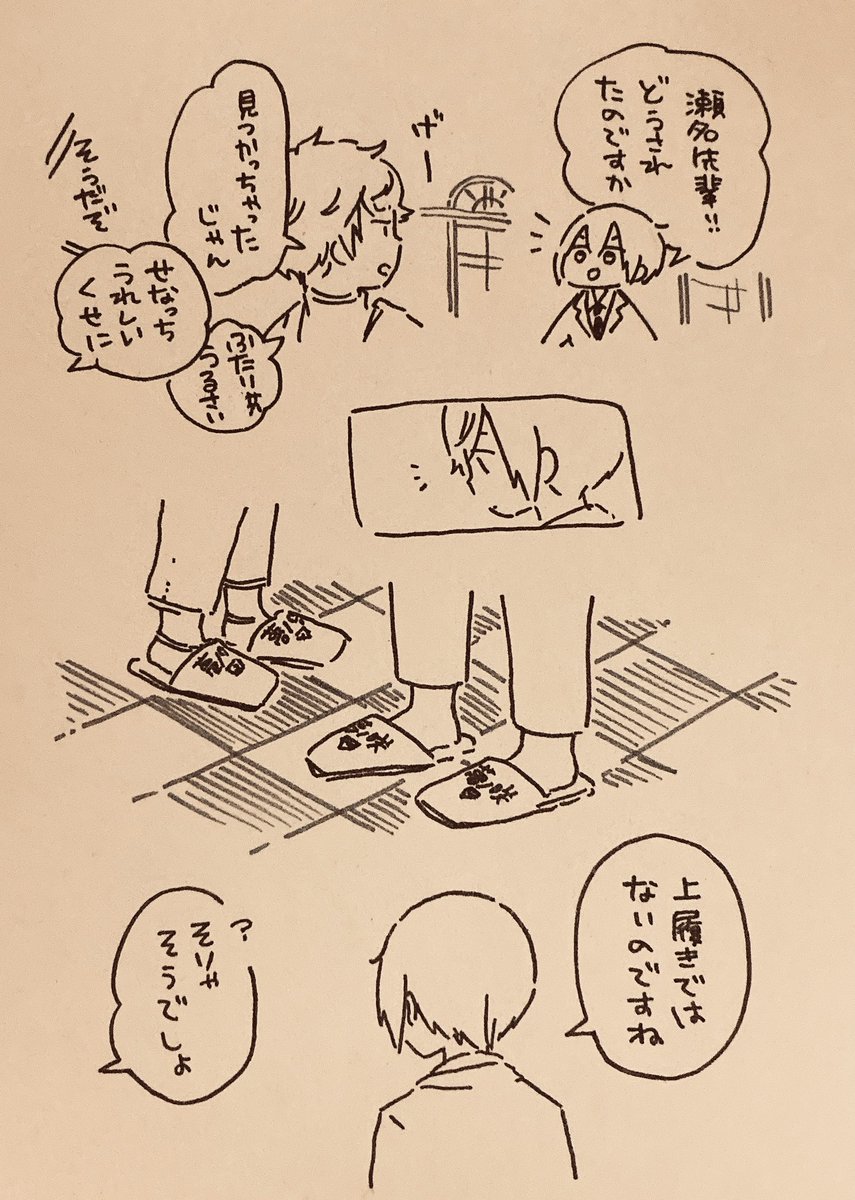 瀬名先輩!!
どうされ
たのですか
げー
見つかっちゃった
じゃん
そうだぞ
せなっち
うれしい
くせに
ふたり共
うるさい
上履きでは
ないのですね
?
そりゃ
そうでしょ